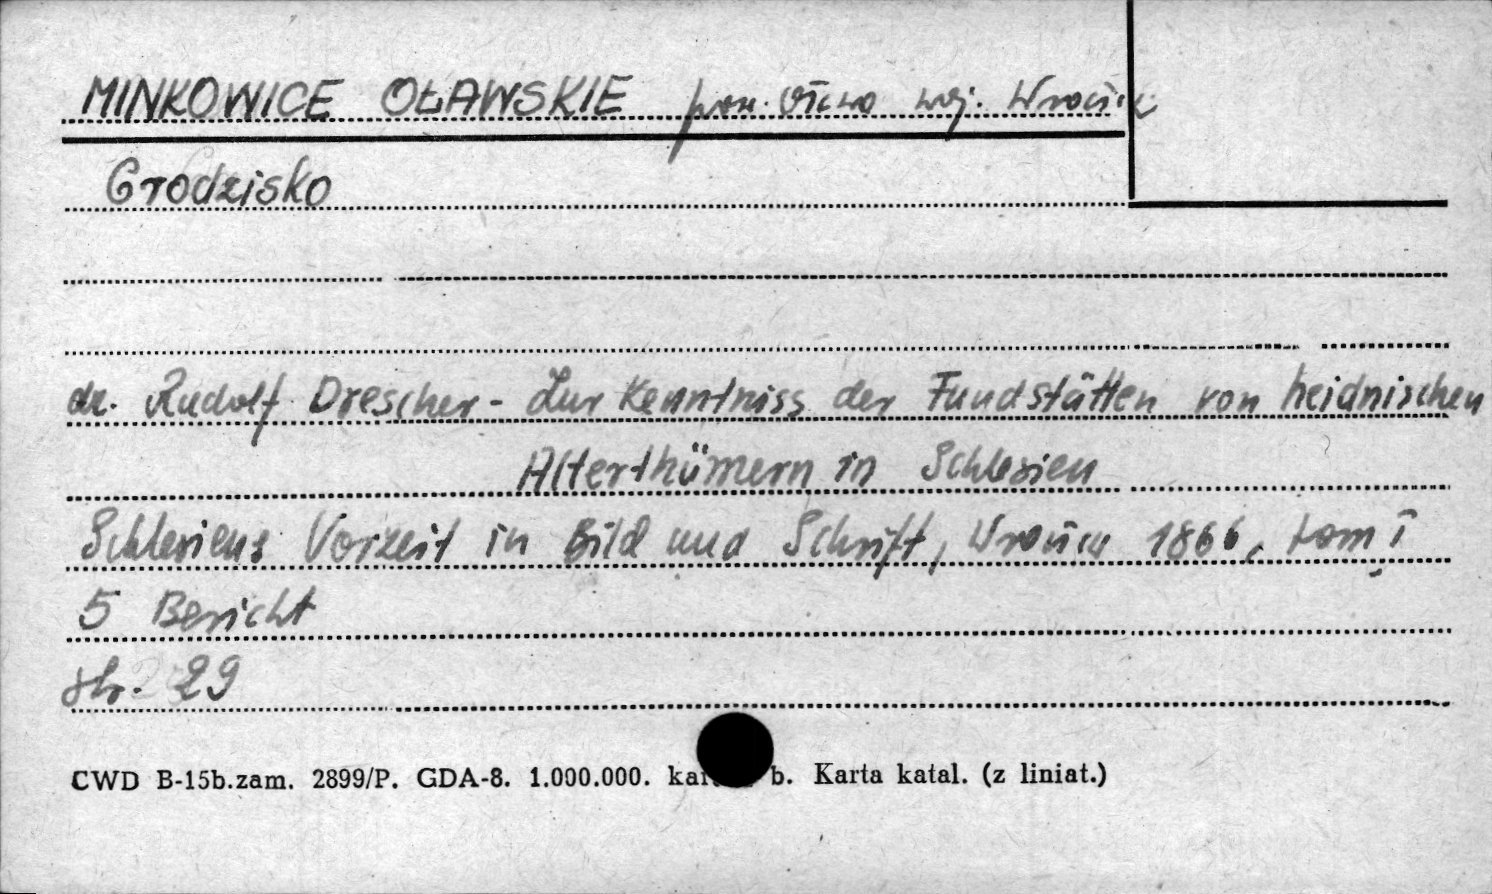 MINKOWICE OŁAWSKIE pow. Oława woj. Wrocław
Grodzisko
dr. Rudolf Drescher - Zur Kenntniss der Fundstätten von heidnischen
Alterthümern in Schlesien
Schlesiens Vorzeit in Bild und Schrift, Wrocław 1866, tom I
5 Bericht
str. 29
CWD B-15b.zam. 2899/P. GDA-8. 1.000.000. b. Karta katal. (z liniat.)